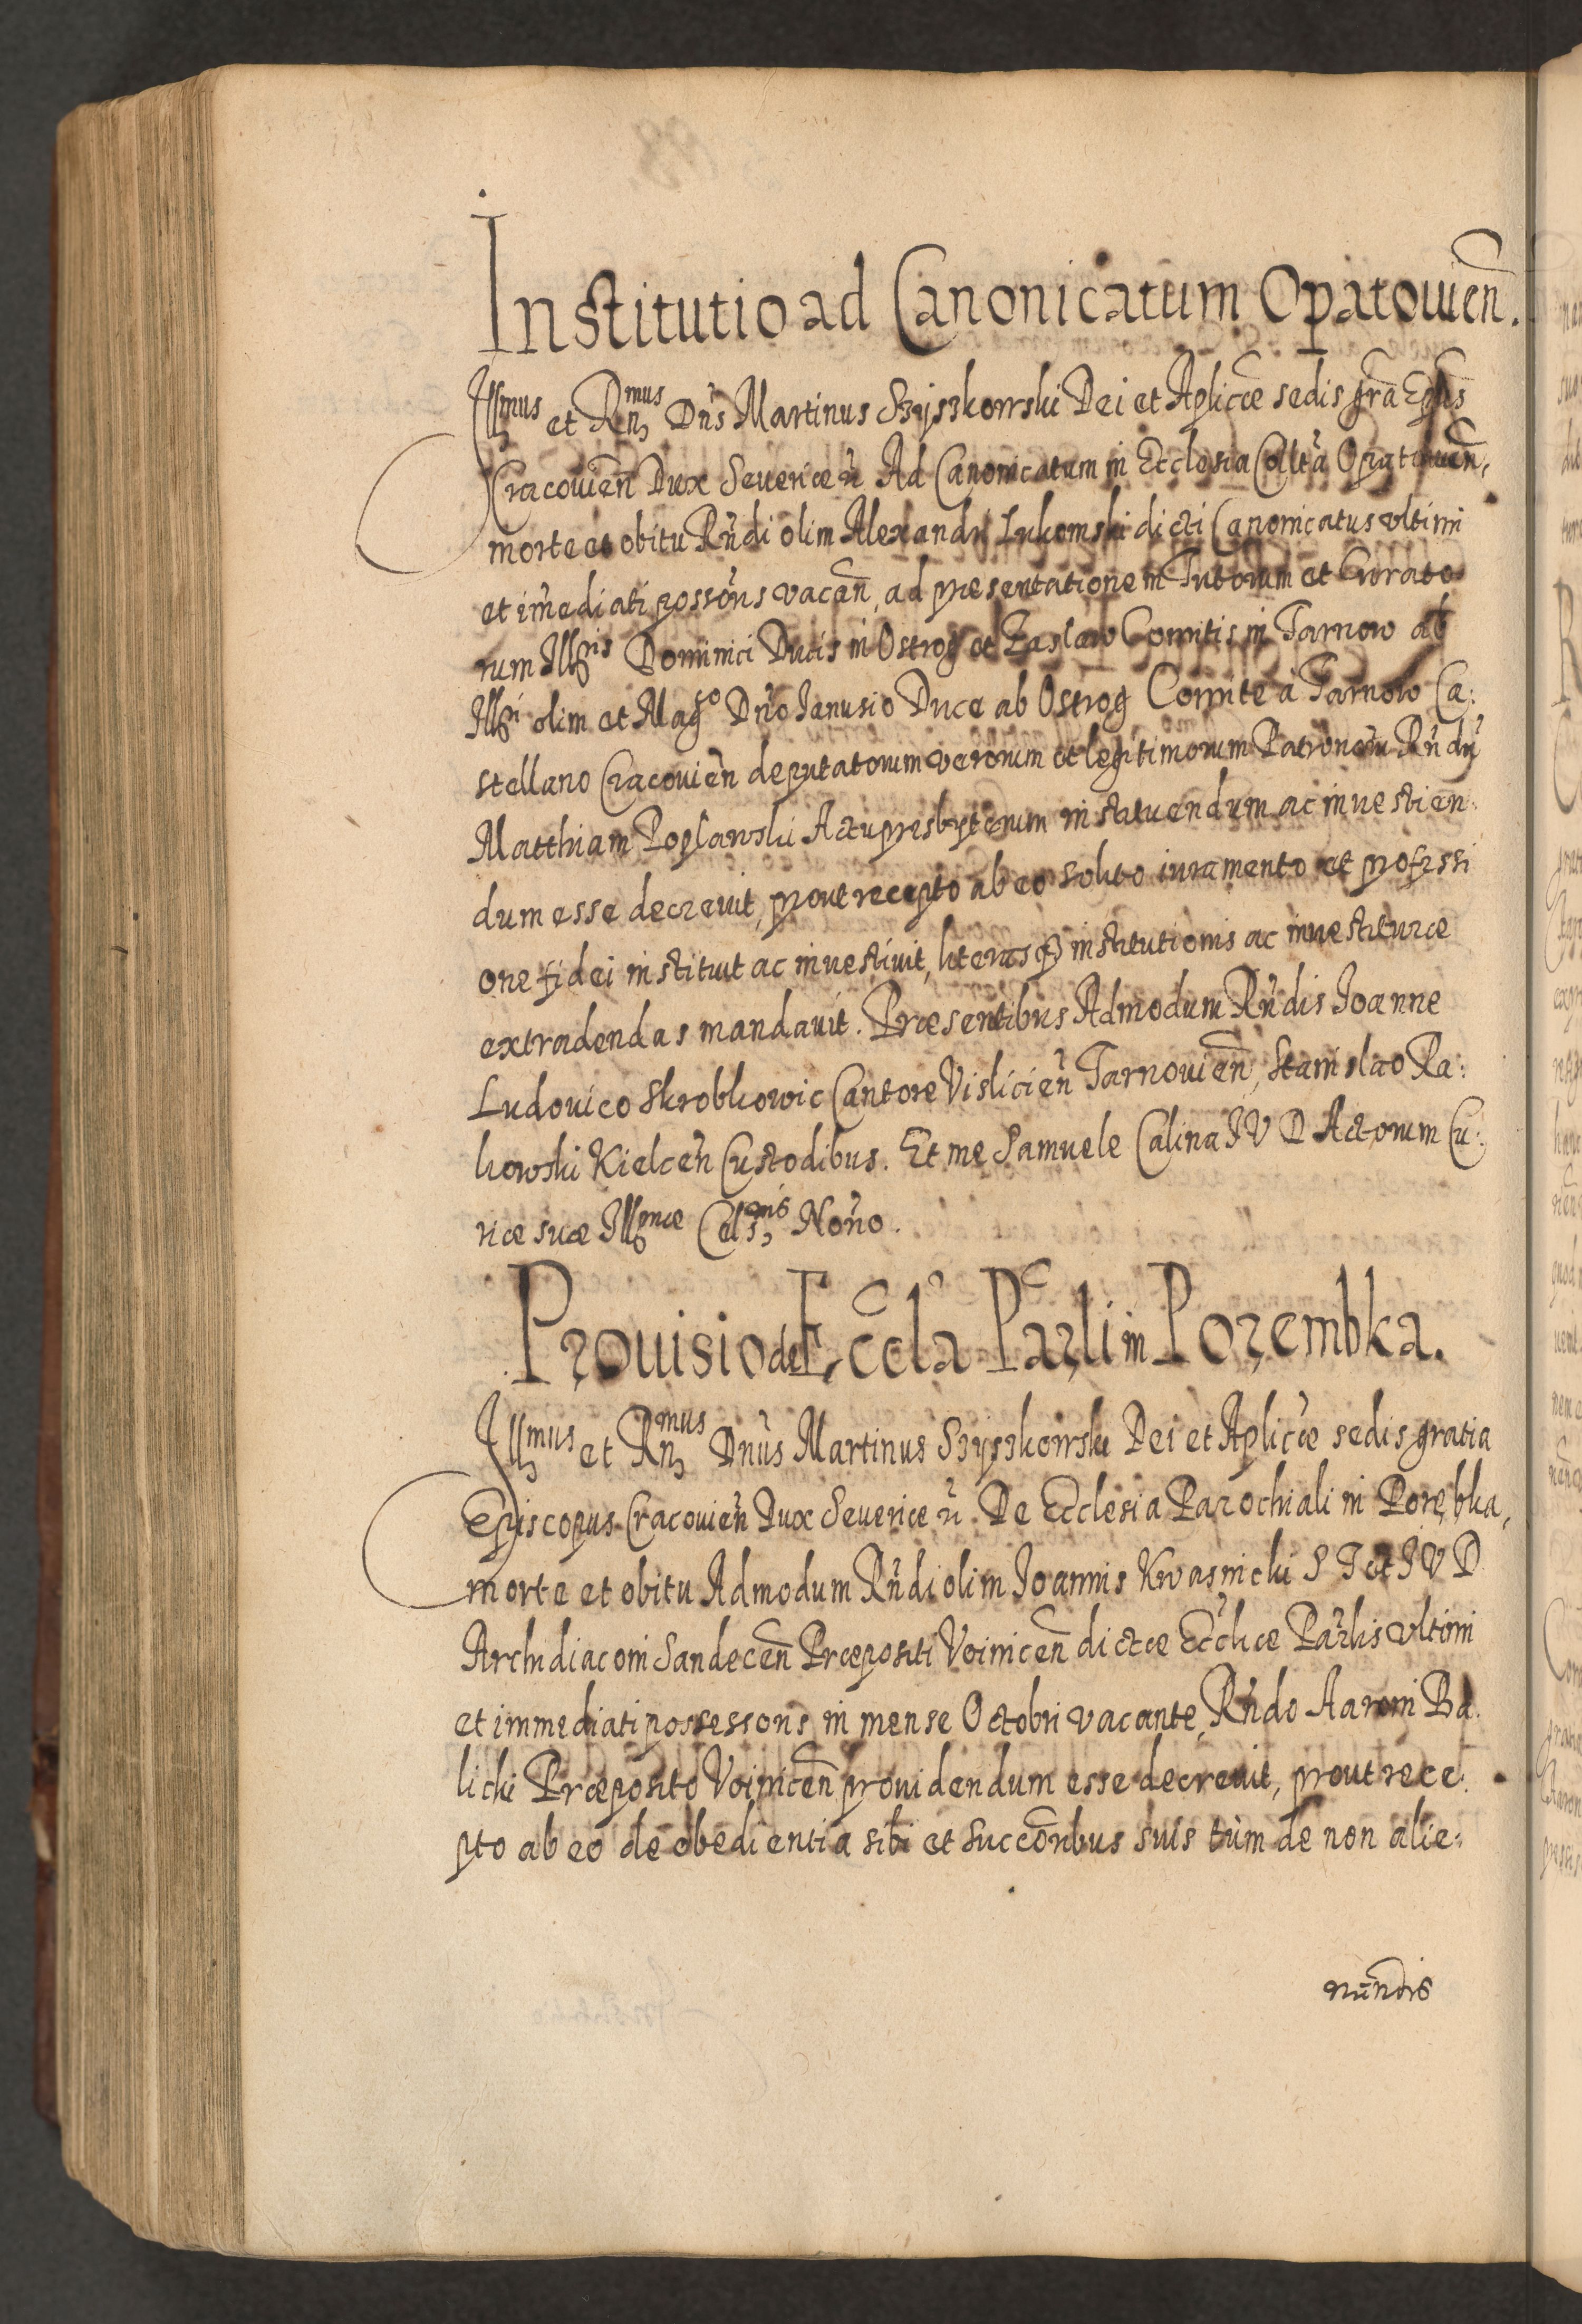 Institutio ad Canonicatum Opatouien̄.
Illmus et Rn̄mus Dn̄s Martinus Szyszkowski Dei et Aplicæ sedis gr̄a Ep̄us
Cracouien̄ Dux Seueriæ ꝛc Ad Canonicatum in Ecclesia Coll̄ta Opatouien̄,
morte et obitu Rn̄di olim Alexandri Lukomski dicti Canonicatus vltimi
et im̄ediati possōris vacan̄, ad præsentationem Tutorum et Curato
rum Illris Dominici Ducis in Ostrog et Zaslaw Comitis in Tarnow ab
Illri olim et Magco Dn̄o Ianusio Duce ab Ostrog Comite à Tarnow Ca:
stellano Cracouien̄ deputatorum verorum et legitimorum Patronorū Rn̄dū
Matthiam Poplawski Actu præsbyterum instituendum ac inuestien:
dum esse decreuit, prout recepto ab eo solito iuramento et professi
one fidei instituit ac inuestiuit, literasqꝫ institutionis ac inuestituræ
extradendas mandauit. Præsentibus Admodum Rn̄dis Ioanne
Ludouico Skrobkowic Cantore Vislicien̄ Tarnouien̄, Stanislao Ra:
kowski Kielcen̄ Custodibus. Et me Samuele Calina IVD Actorum Cu:
riæ suæ Illmæ Cels̄nis Not̄o.
Prouisio de Eccla Par̄li in Porembka.
Illmus et Rn̄mus Dn̄us Martinus Szyszkowski Dei et Aplicæ sedis gratia
Episcopus Cracouien̄ Dux Seueriæ ꝛc. De Ecclesia Parochiali in Porębka,
morte et obitu Admodum Rn̄di olim Ioannis Kwasnicki S T et I V D
Archidiaconi Sandecen̄ Præpositi Voinicen̄ dictæ Ecc̄liæ Par̄lis vltimi
et immediati possessoris in mense Octobri vacante, Rn̄do Aaroni Ba
licki Præposito Voinicen̄ prouidendum esse decreuit, prout rece:
pto ab eo de obedientia sibi et succōribus suis tùm de non alie:
nandis